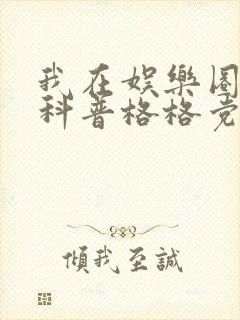 我在娛樂圈
科普格格党
傾我至誠